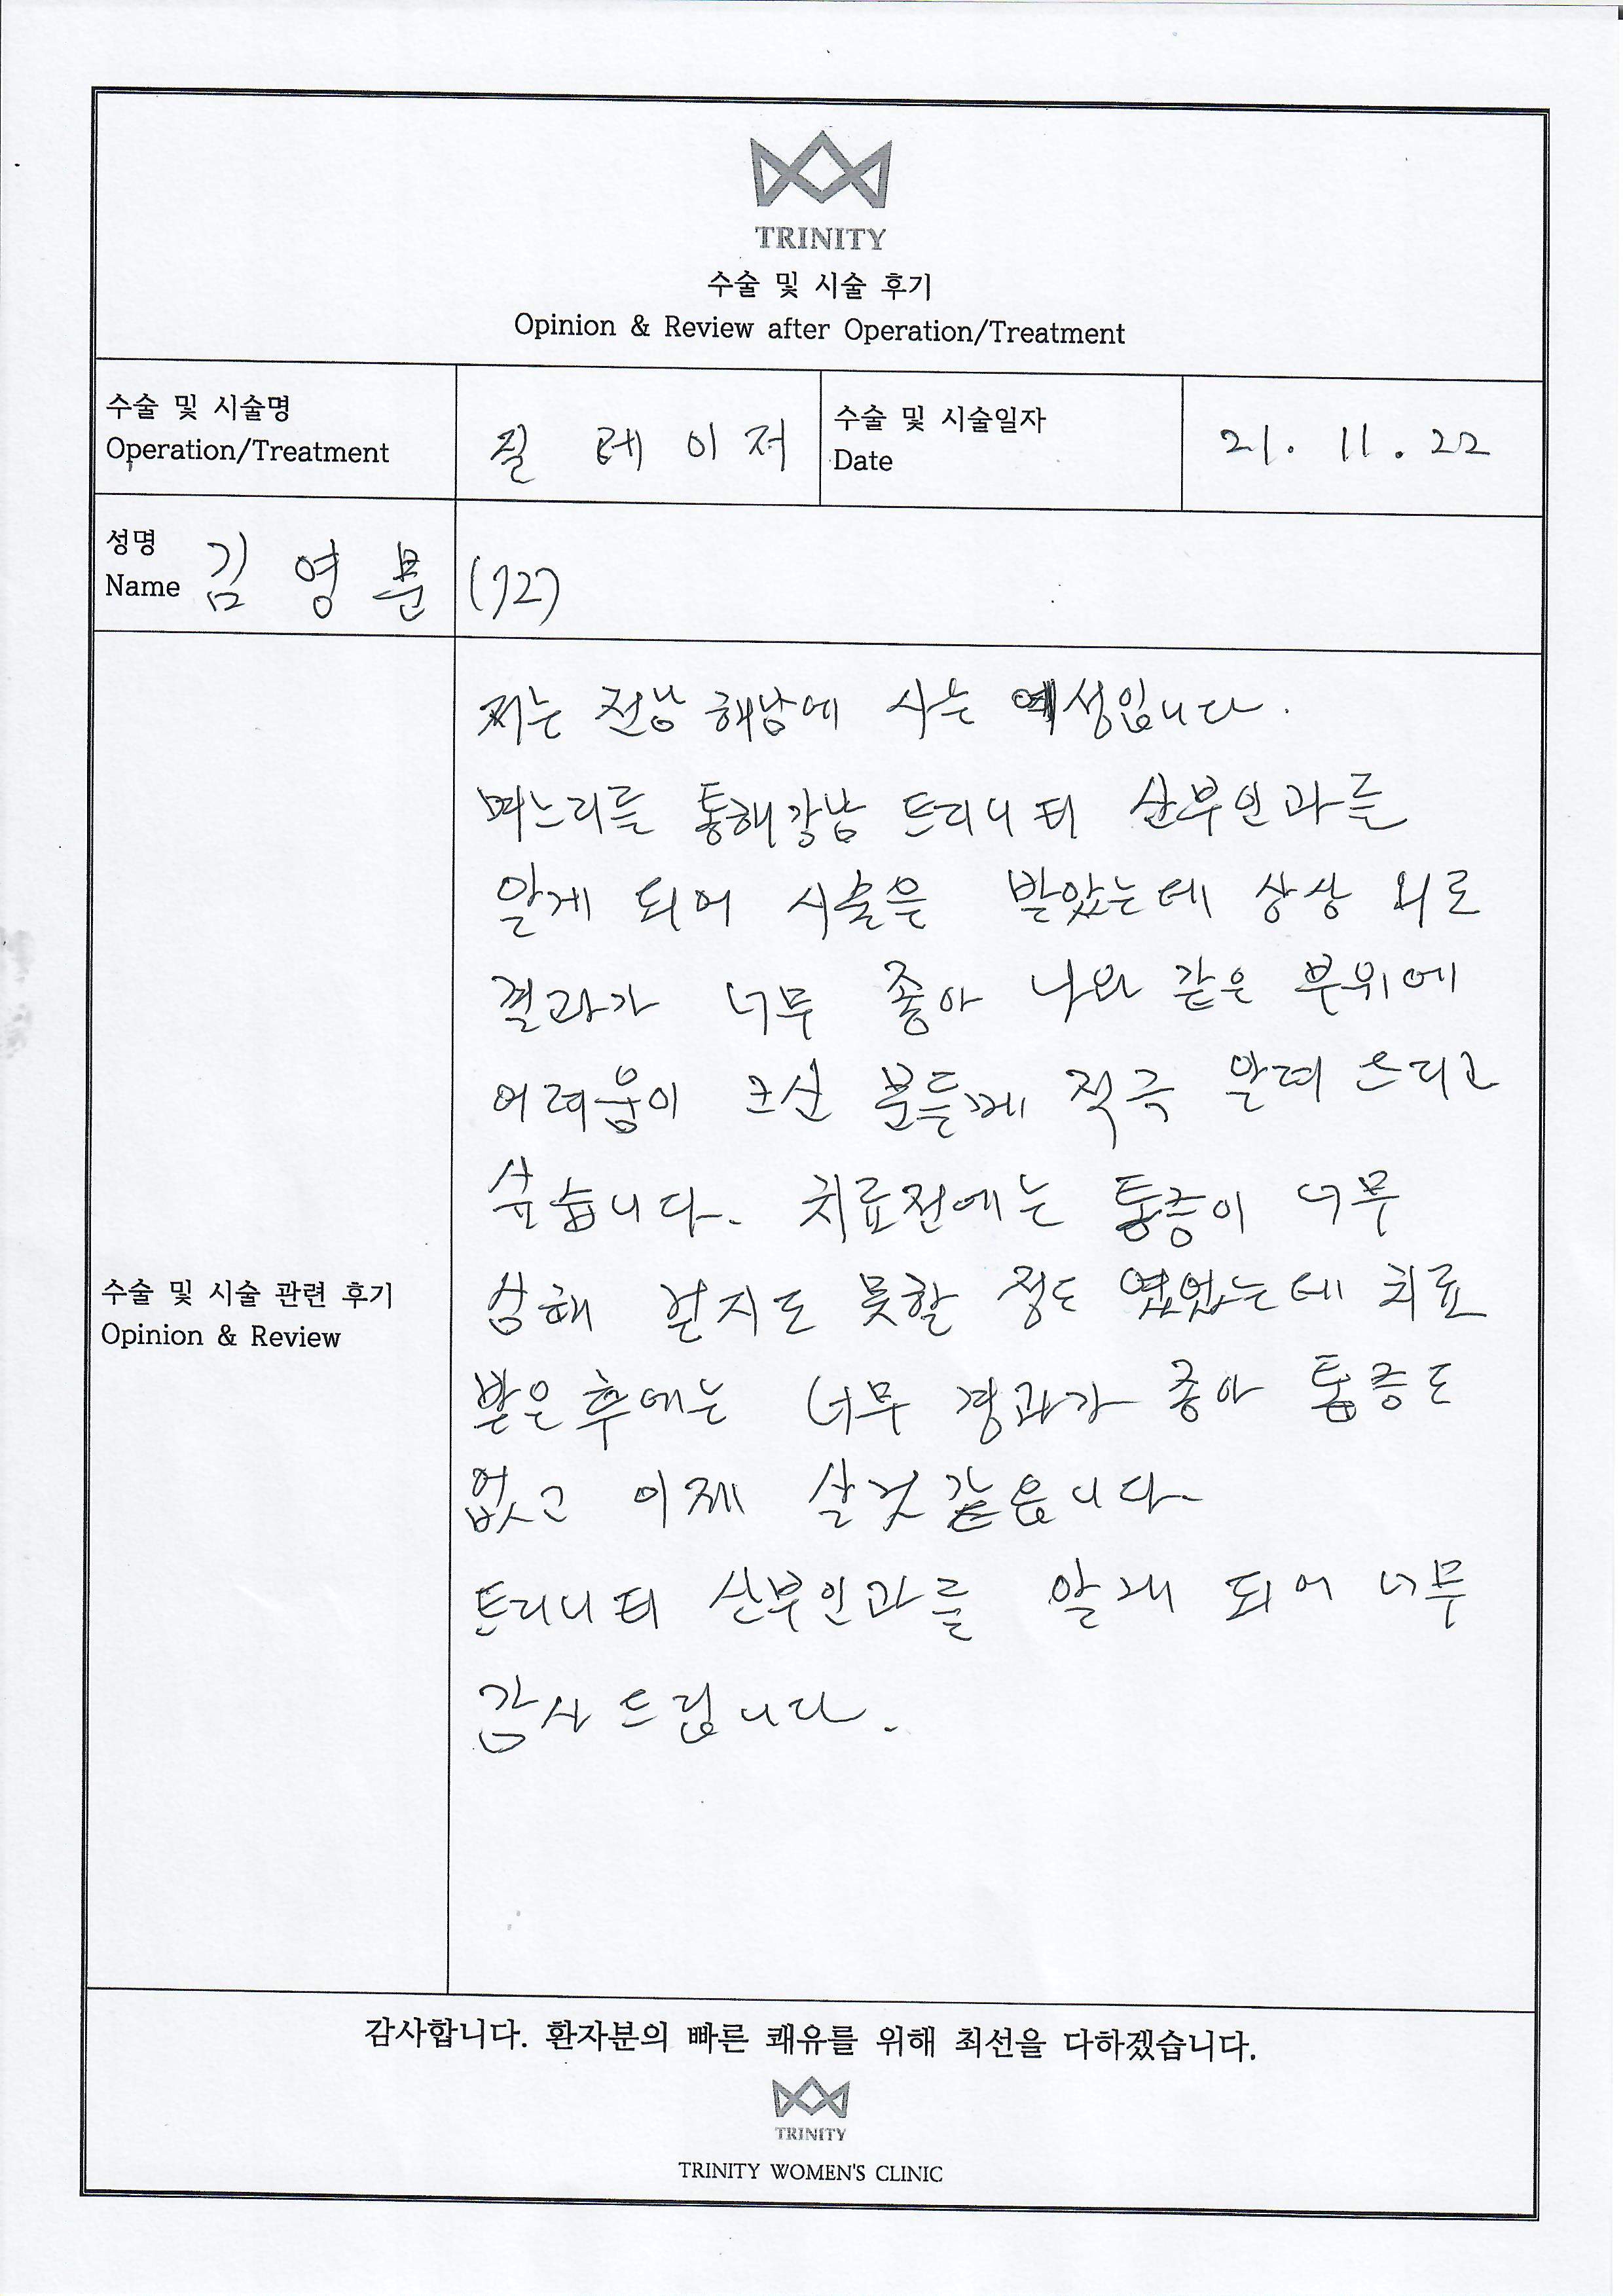 TRINITY
수술 및 시술 후기
Opinion & Review after Operation/Treatment
수술 및 시술명
Operation/Treatment
질 레이저
수술 및 시술일자
Date
21. 11. 22
성명
Name
김영분 (72)
저는 전남 해남에 사는 여성입니다.
며느리를 통해강남 트리니티 산부인과를
알게 되어 시술을 받았는데 상상 외로
결과가 너무 좋아 나와 같은 부위에
어려움이 크신 분들께 적극 알려 드리고
싶습니다. 치료전에는 통증이 너무
심해 걷지도 못할 정도 였었는데 치료
받은 후에는 너무 경과가 좋아 통증도
없고 이제 살것 같읍니다.
트리니티 산부인과를 알게 되어 너무
감사 드립니다.
수술 및 시술 관련 후기
Opinion & Review
감사합니다. 환자분의 빠른 쾌유를 위해 최선을 다하겠습니다.
TRINITY
TRINITY WOMEN'S CLINIC